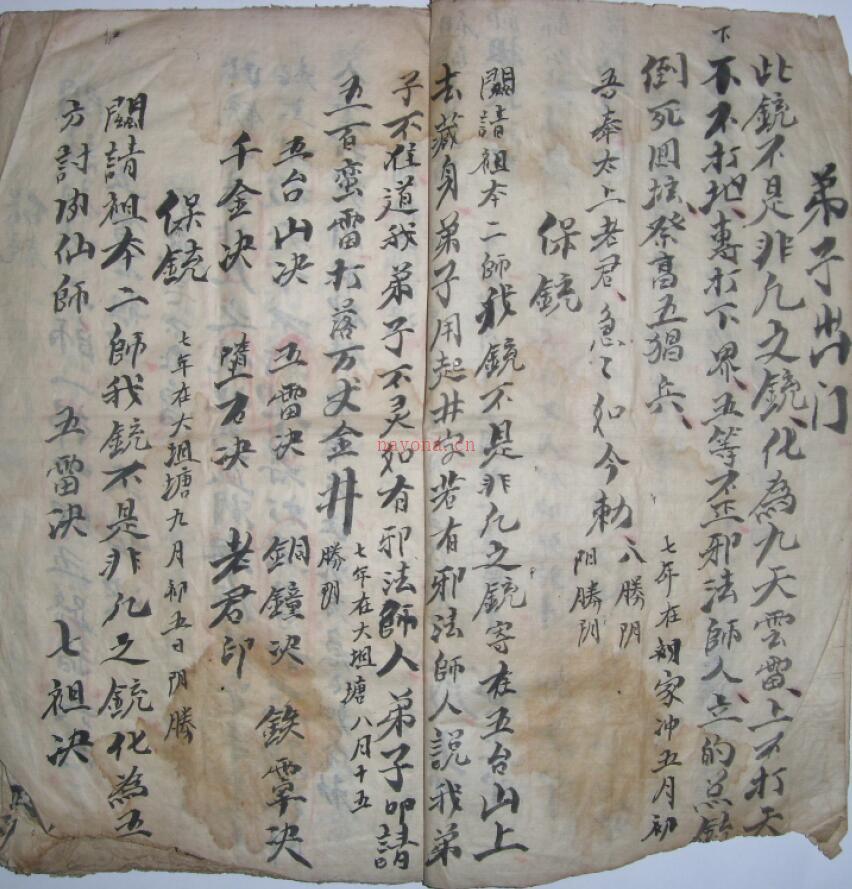 弟子出门
此銃不是非凡之銃化為九天雲雷上不打天
下不打地專打下界五等不正邪法師人立的
倒死回壇祭高五猖兵
七年在家冲五月初
吾奉太上老君急々如令勅
八勝阴
阳勝阴
保銃
開請祖本二師我銃不是非凡之銃寄在五台山上
去藏身弟子用起井若有邪法師人説我弟
子不准道我弟子不灵如有邪法師人弟子叩請
五百蛮雷打落万丈金井
七年在大坦塘八月十五
勝阴
五台山决 五雷决 銅鐘决 鉄罩决
千金决 墮石决 老君印
保銃
七年在大坦塘九月初五日阴勝
開請祖本二師我銃不是非凡之銃化為五
方討仙師 五雷决 七祖决
nayona.cn